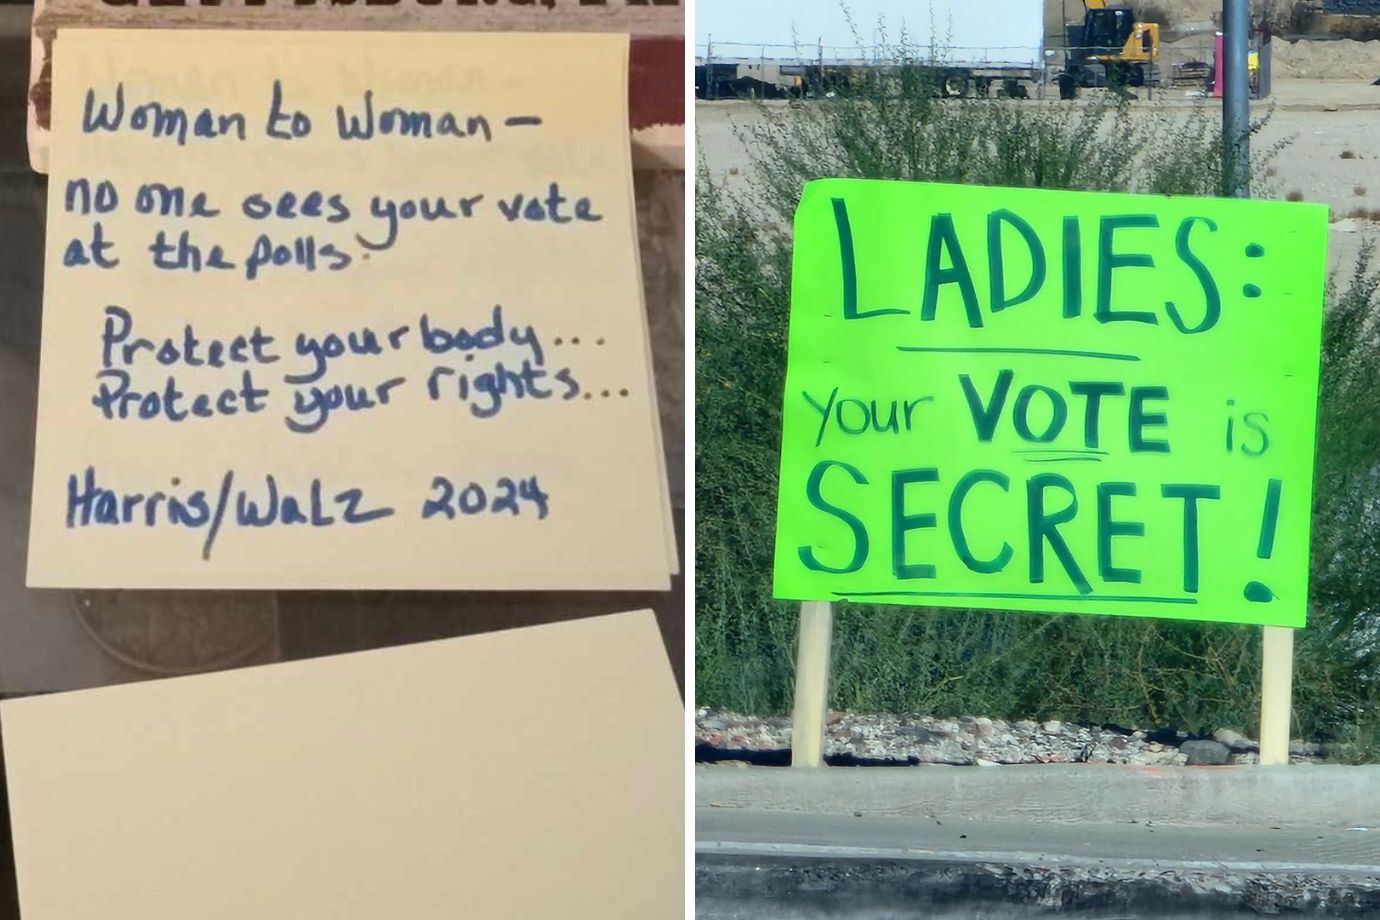 Woman to Woman –
no one sees your vote
at the polls.
Protect your body...
Protect your rights...
Harris/Walz 2024
LADIES:
your VOTE is
SECRET!